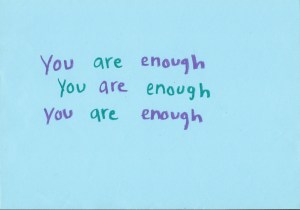 You are enough
You are enough
You are enough